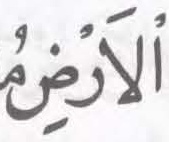 اْلاَرْضِ مُ